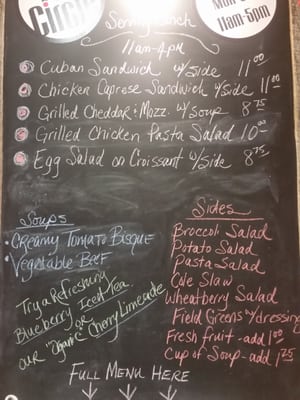 Circle
11am-5pm
Serving Lunch
11am-4pm
Cuban Sandwich w/side 11.00
Chicken Caprese Sandwich w/side 11.00
Grilled Cheddar & Mozz. w/soup 8.75
Grilled Chicken Pasta Salad 10.00
Egg Salad on Croissant w/side 8.75
Soups
• Creamy Tomato Bisque
• Vegetable Beef
Try a Refreshing
Blueberry Iced Tea
or
our "Organic" Cherry Limeade
Sides
Broccoli Salad
Potato Salad
Pasta Salad
Cole Slaw
Wheatberry Salad
Field Greens w/dressing
Fresh fruit - add 1.00
Cup of Soup - add 1.25
Full Menu Here